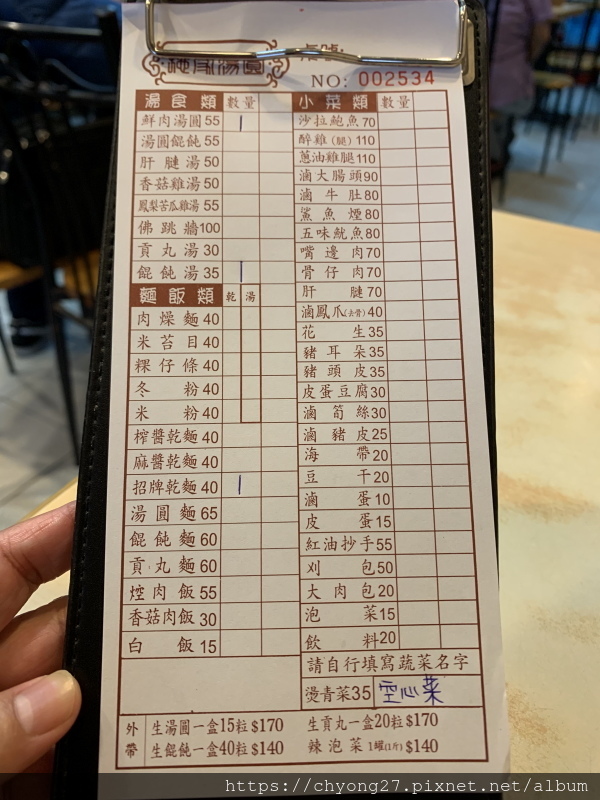 NO: 002534
湯食類 數量
鮮肉湯圓 55 |
湯圓餛飩 55
肝腱湯 50
香菇雞湯 50
鳳梨苦瓜雞湯 55
佛跳牆 100
貢丸湯 30
餛飩湯 35 |
麵飯類 乾 湯
肉燥麵 40
米苔目 40
粿仔條 40
冬粉 40
米粉 40
榨醬乾麵 40
麻醬乾麵 40
招牌乾麵 40 |
湯圓麵 65
餛飩麵 60
貢丸麵 60
焢肉飯 55
香菇肉飯 30
白飯 15
小菜類 數量
沙拉鮑魚 70
醉雞(腿) 110
蔥油雞腿 110
滷大腸頭 90
滷牛肚 80
鯊魚煙 80
五味魷魚 80
嘴邊肉 70
骨仔肉 70
肝腱 70
滷鳳爪(去骨) 40
花生 35
豬耳朵 35
豬頭皮 35
皮蛋豆腐 30
滷筍絲 30
滷豬皮 25
海帶 20
豆干 20
滷蛋 10
皮蛋 15
紅油抄手 55
刈包 50
大肉包 20
泡菜 15
飲料 20
請自行填寫蔬菜名字
燙青菜 35 空心菜
外帶
生湯圓一盒15粒$170 生貢丸一盒20粒$170
生餛飩一盒40粒$140 辣泡菜1罐(1斤)$140
https://chyong27.pixnet.net/album